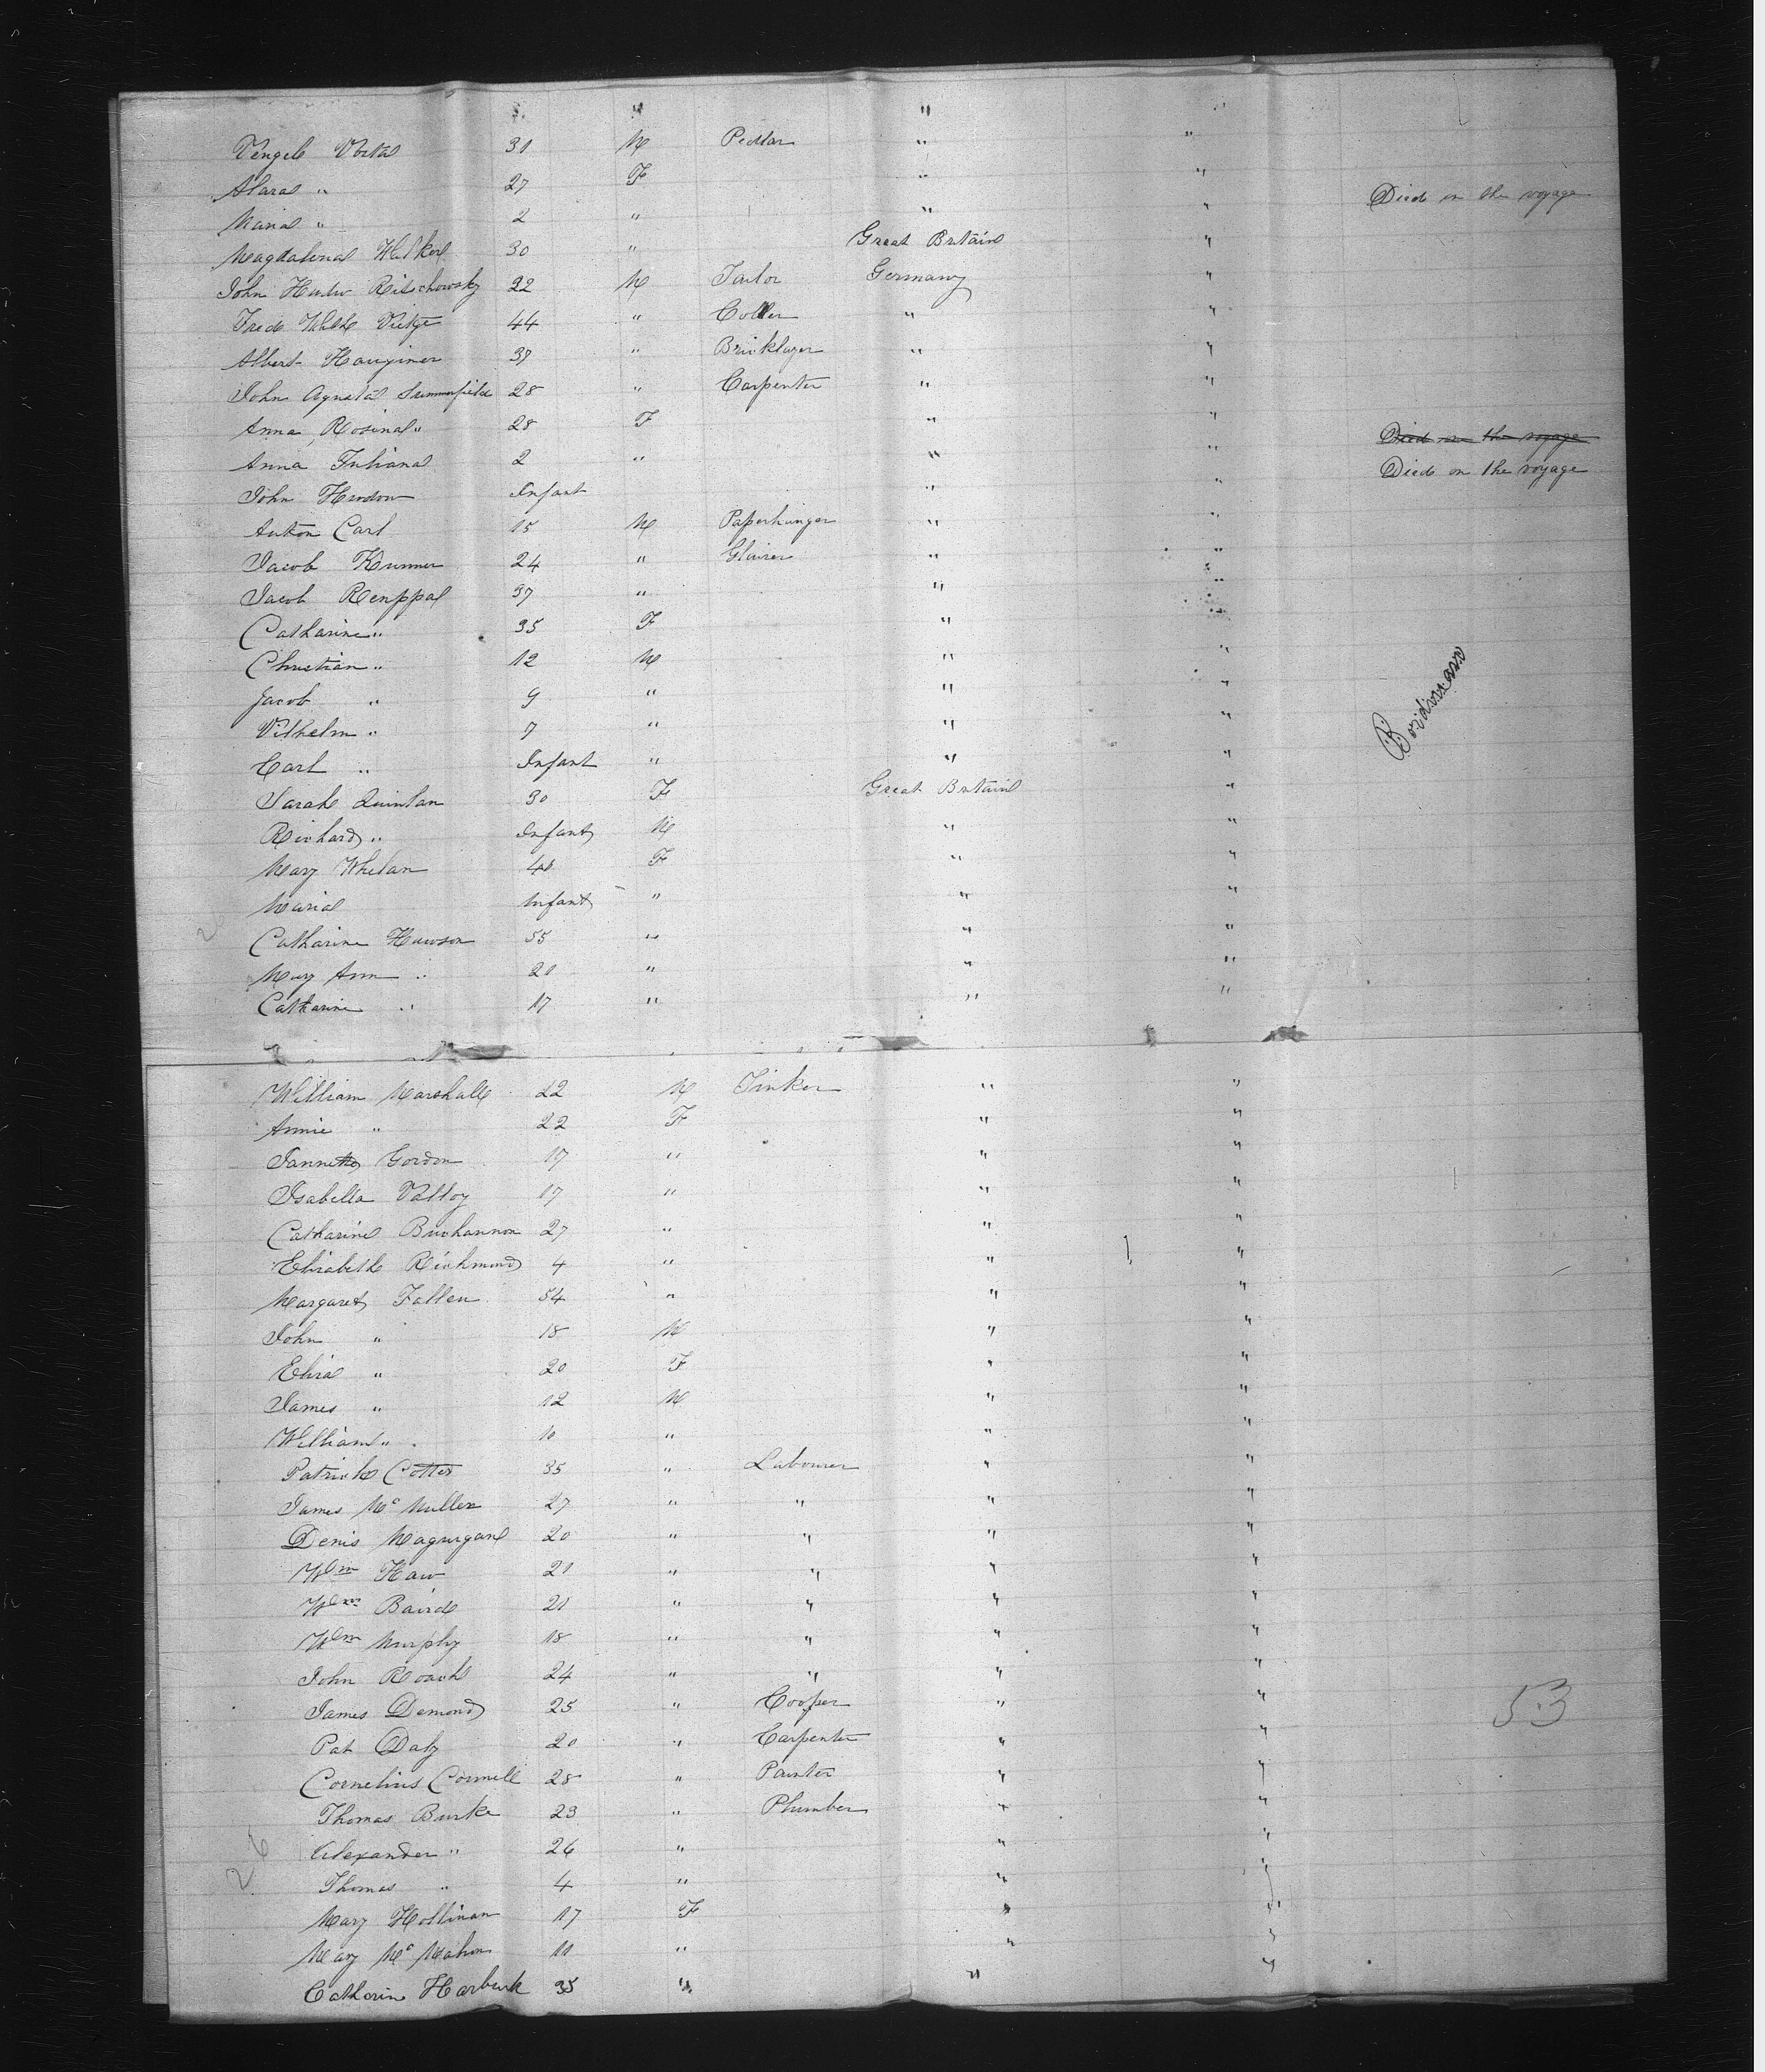 " " "
Vengele Votta 31 M Pedlar " "
Alara " 27 F " "
Maria " 2 " " " Died on the voyage
Magdalena Walker 30 " Great Britain "
John Ritschowsky 22 M Tailor Germany "
Fred Vietge 44 " " "
Albert 37 " Bricklayer " "
John Agusta Summerfield 28 " Carpenter " "
Anna Rosina " 28 F " "
Anna Juliana 2 " " " Died on the voyage
John Infant " " Died on the voyage
Anton Carl 15 M Paperhanger " "
Jacob Krummer 24 " " "
Jacob Remppal 37 " " "
Catharine " 35 F "
Christian " 12 M " "
Jacob " 9 " " "
Vilhelm " 7 " " "
Carl " Infant " " "
Sarah Quinlan 30 F Great Britain "
Richard " Infant M " "
Mary Whelan 40 F " "
Maria Infant " " "
Catharine Hawson 55 " " "
Mary Ann " 20 " " "
Catharine " 17 " " "
William Marshall 22 M Tinker " "
Annie " 22 F " "
Gordon 17 " " "
Isabella Valloy 17 " " "
Catharine Buchannon 27 " " "
Elizabeth Richmond 4 " " "
Margaret Fallen 54 " " "
John " 18 M " "
Eliza " 20 F " "
James " 12 M " "
William " 10 " " "
Patrick Cotter 35 " Labourer " "
James Mc Mullen 27 " " " "
Denis Magurgan 20 " " " "
Wm Haw 21 " " " "
Wm Baird 21 " " " "
Wm Murphy 18 " " " "
John Roach 24 " " " "
James Demond 25 " Cooper " "
53
Pat Daly 20 " Carpenter " "
Cornelius Connell 28 " Painter " "
Thomas Burke 23 " Plumber " "
Alexander " 26 " " "
26
Thomas " 4 " " "
Mary Hollinan 17 F " "
Mary Mc Mahon 11 " " "
Catharine Harbeck 35 " " "